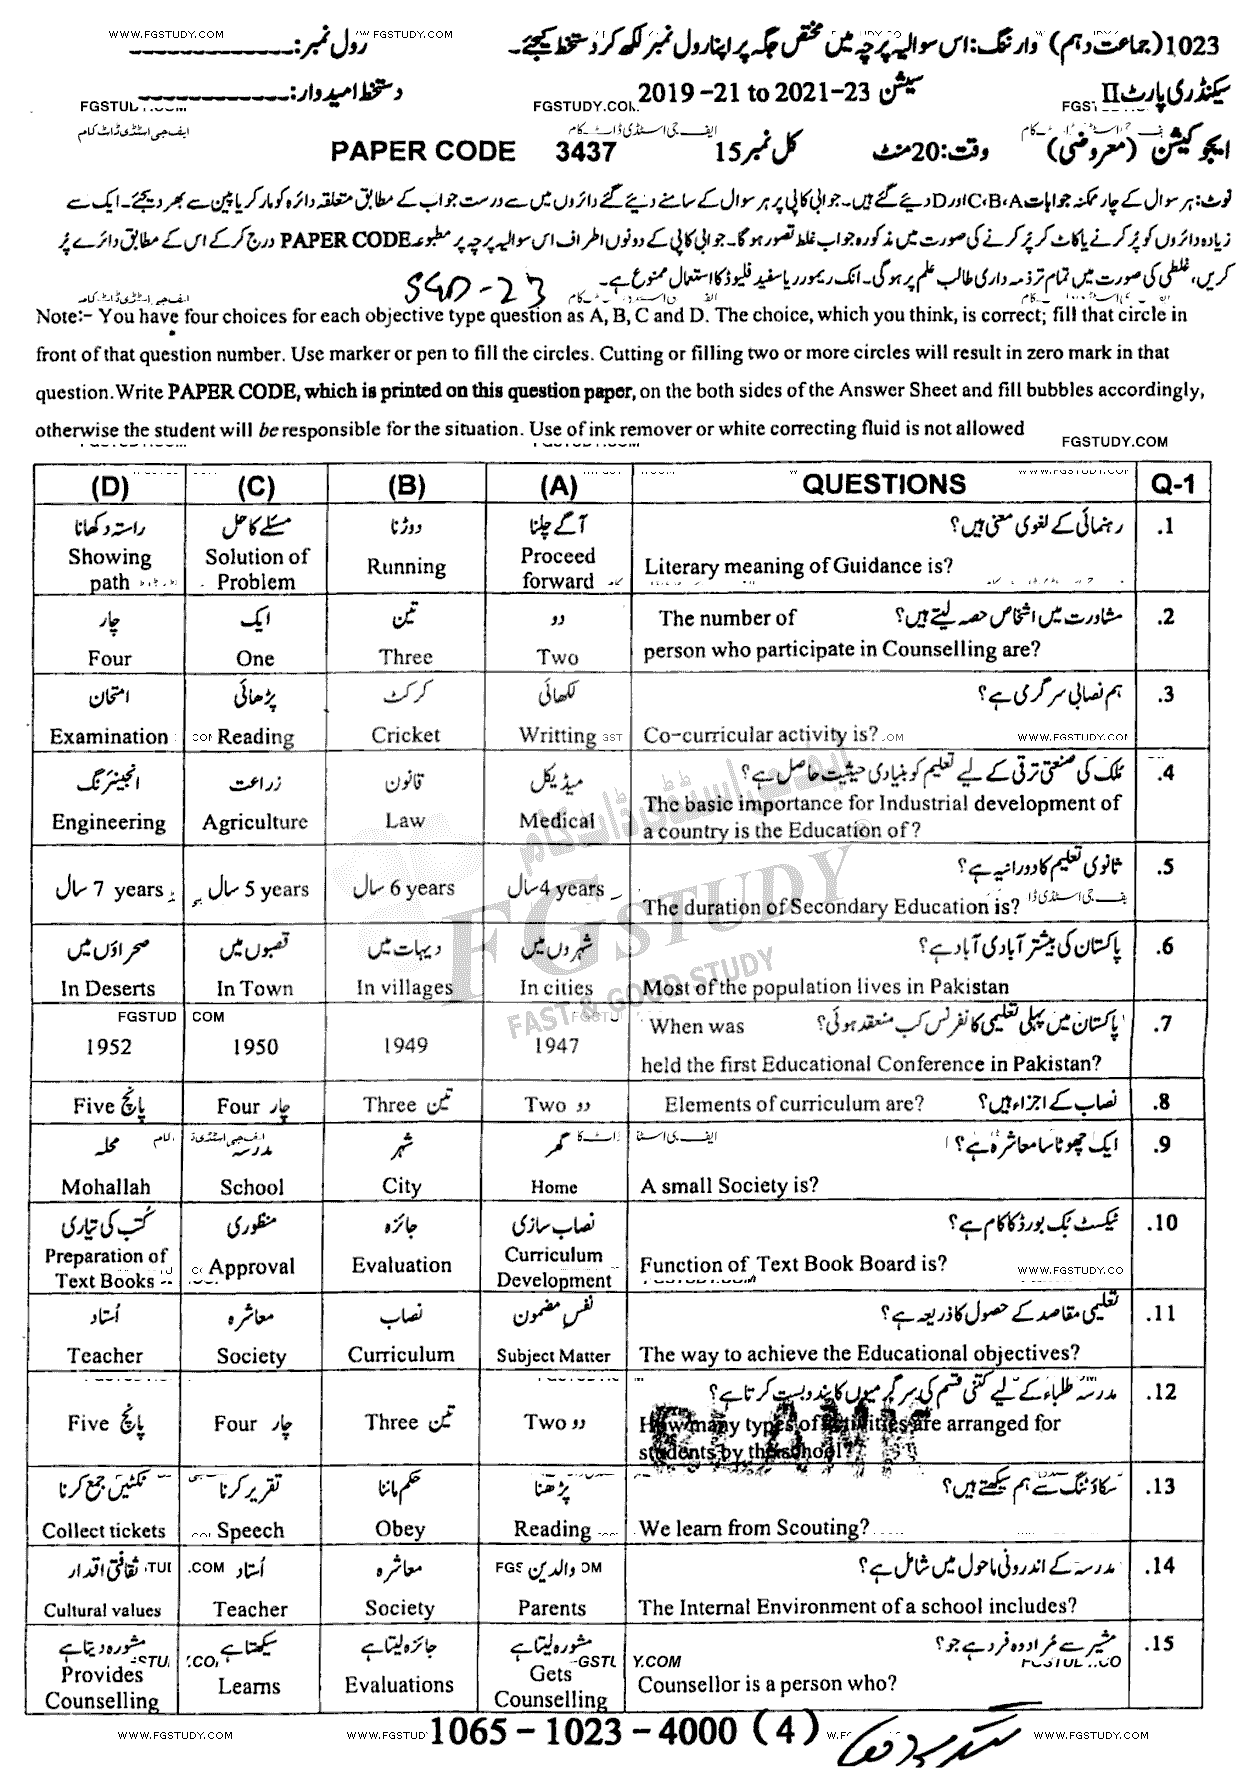 WWW.FGSTUDY.COM
1023 (جماعت دہم) وارننگ: اس سوالیہ پرچہ میں مختص جگہ پر اپنا رول نمبر لکھ کر دستخط کیجئے۔ رول نمبر:
سیکنڈری پارٹ II سیشن 2019 -21 to 2021-23 دستخط امیدوار:
FGSTUDY.COM
ایف جی اسٹڈی ڈاٹ کام
ایجوکیشن (معروضی) وقت:20 منٹ کل نمبر 15 PAPER CODE 3437
نوٹ: ہر سوال کے چار ممکنہ جوابات C، B، A اور D دیئے گئے ہیں۔ جوابی کاپی پر ہر سوال کے سامنے دیئے گئے دائروں میں سے درست جواب کے مطابق متعلقہ دائرہ کو مارکر یا پین سے بھر دیجئے۔ ایک سے
زیادہ دائروں کو پُر کرنے یا کاٹ کر پُر کرنے کی صورت میں مذکورہ جواب غلط تصور ہوگا۔ جوابی کاپی کے دونوں اطراف اس سوالیہ پرچہ پر مطبوعہ PAPER CODE درج کر کے اس کے مطابق دائرے پُر
کریں، غلطی کی صورت میں تمام تر ذمہ داری طالب علم پر ہوگی۔ انک ریموور یا سفید فلیوڈ کا استعمال ممنوع ہے۔ SGD-23
Note:- You have four choices for each objective type question as A, B, C and D. The choice, which you think, is correct; fill that circle in
front of that question number. Use marker or pen to fill the circles. Cutting or filling two or more circles will result in zero mark in that
question.Write PAPER CODE, which is printed on this question paper, on the both sides of the Answer Sheet and fill bubbles accordingly,
otherwise the student will be responsible for the situation. Use of ink remover or white correcting fluid is not allowed
FGSTUDY.COM
(D) (C) (B) (A) QUESTIONS Q-1
راستہ دکھانا مسئلے کا حل دوڑنا آگے چلنا رہنمائی کے لغوی معنی ہیں؟ .1
Showing path Solution of Problem Running Proceed forward Literary meaning of Guidance is?
چار ایک تین دو مشاورت میں اشخاص حصہ لیتے ہیں؟ The number of .2
Four One Three Two person who participate in Counselling are?
امتحان پڑھائی کرکٹ لکھائی ہم نصابی سرگرمی ہے؟ .3
Examination Reading Cricket Writting Co-curricular activity is?
انجینئرنگ زراعت قانون میڈیکل ملک کی صنعتی ترقی کے لیے تعلیم کو بنیادی حیثیت حاصل ہے؟ .4
Engineering Agriculture Law Medical The basic importance for Industrial development of
a country is the Education of?
7 سال years 5 سال years 6 سال years 4 سال years ثانوی تعلیم کا دورانیہ ہے؟ .5
The duration of Secondary Education is?
صحراؤں میں قصبوں میں دیہات میں شہروں میں پاکستان کی بیشتر آبادی آباد ہے؟ .6
In Deserts In Town In villages In cities Most of the population lives in Pakistan
پاکستان میں پہلی تعلیمی کانفرنس کب منعقد ہوئی؟ When was .7
1952 1950 1949 1947 held the first Educational Conference in Pakistan?
Five پانچ Four چار Three تین Two دو Elements of curriculum are? نصاب کے اجزاء ہیں؟ .8
محلہ مدرسہ شہر گھر ایک چھوٹا سا معاشرہ ہے؟ .9
Mohallah School City Home A small Society is?
کُتب کی تیاری منظوری جائزہ نصاب سازی ٹیکسٹ بک بورڈ کا کام ہے؟ .10
Preparation of Text Books Approval Evaluation Curriculum Development Function of Text Book Board is?
اُستاد معاشرہ نصاب نفسِ مضمون تعلیمی مقاصد کے حصول کا ذریعہ ہے؟ .11
Teacher Society Curriculum Subject Matter The way to achieve the Educational objectives?
مدرسہ طلباء کے لیے کتنی قسم کی سرگرمیوں کا بندوبست کرتا ہے؟ .12
Five پانچ Four چار Three تین Two دو How many types of activities are arranged for
students by the school?
ٹکٹیں جمع کرنا تقریر کرنا حکم ماننا پڑھنا سکاؤٹنگ سے ہم سیکھتے ہیں؟ .13
Collect tickets Speech Obey Reading We learn from Scouting?
ثقافتی اقدار اُستاد معاشرہ والدین مدرسہ کے اندرونی ماحول میں شامل ہے؟ .14
Cultural values Teacher Society Parents The Internal Environment of a school includes?
مشورہ دیتا ہے سیکھتا ہے جائزہ لیتا ہے مشورہ لیتا ہے مشیر سے مُراد وہ فرد ہے جو؟ .15
Provides Counselling Learns Evaluations Gets Counselling Counsellor is a person who?
ایف جی اسٹڈی ڈاٹ کام
FG STUDY
FAST & GOOD STUDY
1065 – 1023 – 4000 (4)
WWW.FGSTUDY.COM